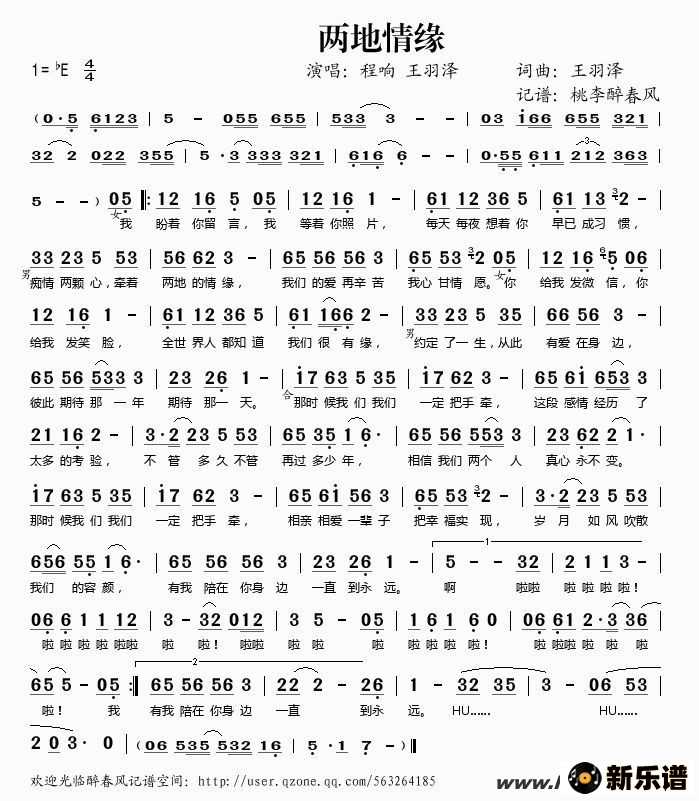 两地情缘
1= ♭E 4/4 演唱：程响 王羽泽 词曲：王羽泽
记谱：桃李醉春风
(0·5 6123 | 5 - 055 655 | 533 3 - - | 03 i66 655 321 |
32 2 022 355 | 5 ·3 333 321 | 616 6 - - | 0·55 611 212 363 |
5 - -) 05 ‖: 12 16 5 05 | 12 16 1 - | 61 12 36 5 | 61 13 2 - |
女我 盼着 你留 言，我 等着 你照 片， 每天 每夜 想着 你 早已 成习 惯，
33 23 5 53 | 56 62 3 - | 65 56 53 3 | 65 53 2 05 | 12 16 5 06 |
男痴情 两颗 心，牵着 两地 的情 缘， 我们 的爱 再辛 苦 我心 甘情 愿。女你 给我 发微 信，你
12 16 1 - | 61 12 36 5 | 61 166 2 - | 33 23 5 35 | 66 53 3 - |
给我 发笑 脸， 全世 界人 都知 道 我们 很 有缘， 男约定 了一 生，从此 有爱 在身 边，
65 56 533 3 | 23 26 1 - | i7 63 35 35 | i7 62 3 - | 65 61 653 3 |
彼此 期待 那 一年 期待 那一 天。 合那时 候我 们 我们 一定 把手 牵， 这段 感情 经历 了
21 16 2 - | 3·2 23 5 53 | 65 35 1 6· | 65 56 553 3 | 23 62 2 1· |
太多 的考 验， 不 管 多久 不管 再过 多少 年， 相信 我们 两个 人 真心 永不 变。
i7 63 53 35 | i7 62 3 - | 65 6i 56 3 | 65 53 2 - | 3·2 23 5 53 |
那时 候我 们 我们 一定 把手 牵， 相亲 相爱 一辈 子 把幸 福实 现， 岁 月 如 风 吹散
656 55 1 6· | 35 56 56 3 | 23 26 1 - | 5 - - 32 | 2 1 1 3 - |
我们 的容 颜， 有我 陪在 你身 边 一直 到永 远。 啊 啦啦 啦 啦 啦 啦！
06 6 1 13 12 | 3 - 32 012 | 3 5 - 05 | 1 6 1 6 0 | 06 61 2·3 36 |
啦 啦 啦 啦 啦啦 啦 啦！ 啦啦 啦 啦 啦 啦 啦 啦 啦！ 啦 啦啦 啦 啦 啦
65 5 - 05 :‖ 65 56 56 3 | 22 2 - 26 | 1 - 32 35 | 3 - 06 53 |
啦！ 我 有我 陪在 你身 边 一直 到永 远。 HU...... HU......
2 0 3 0 - | (06 535 532 16 | 5 ·1 7 -) ‖
欢迎光临醉春风记谱空间：http://user.qzone.qq.com/563264185
新乐谱